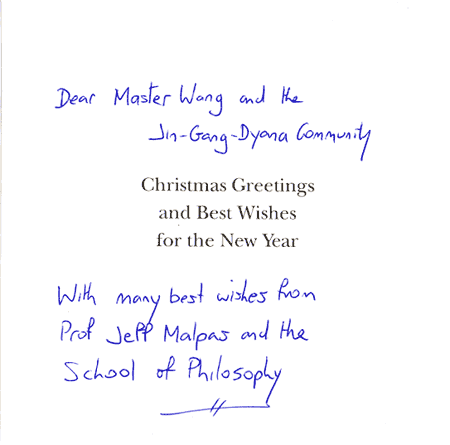 Dear Master Wang and the
Jin-Gang-Dyana Community
Christmas Greetings
and Best Wishes
for the New Year
With many best wishes from
Prof Jeff Malpas and the
School of Philosophy